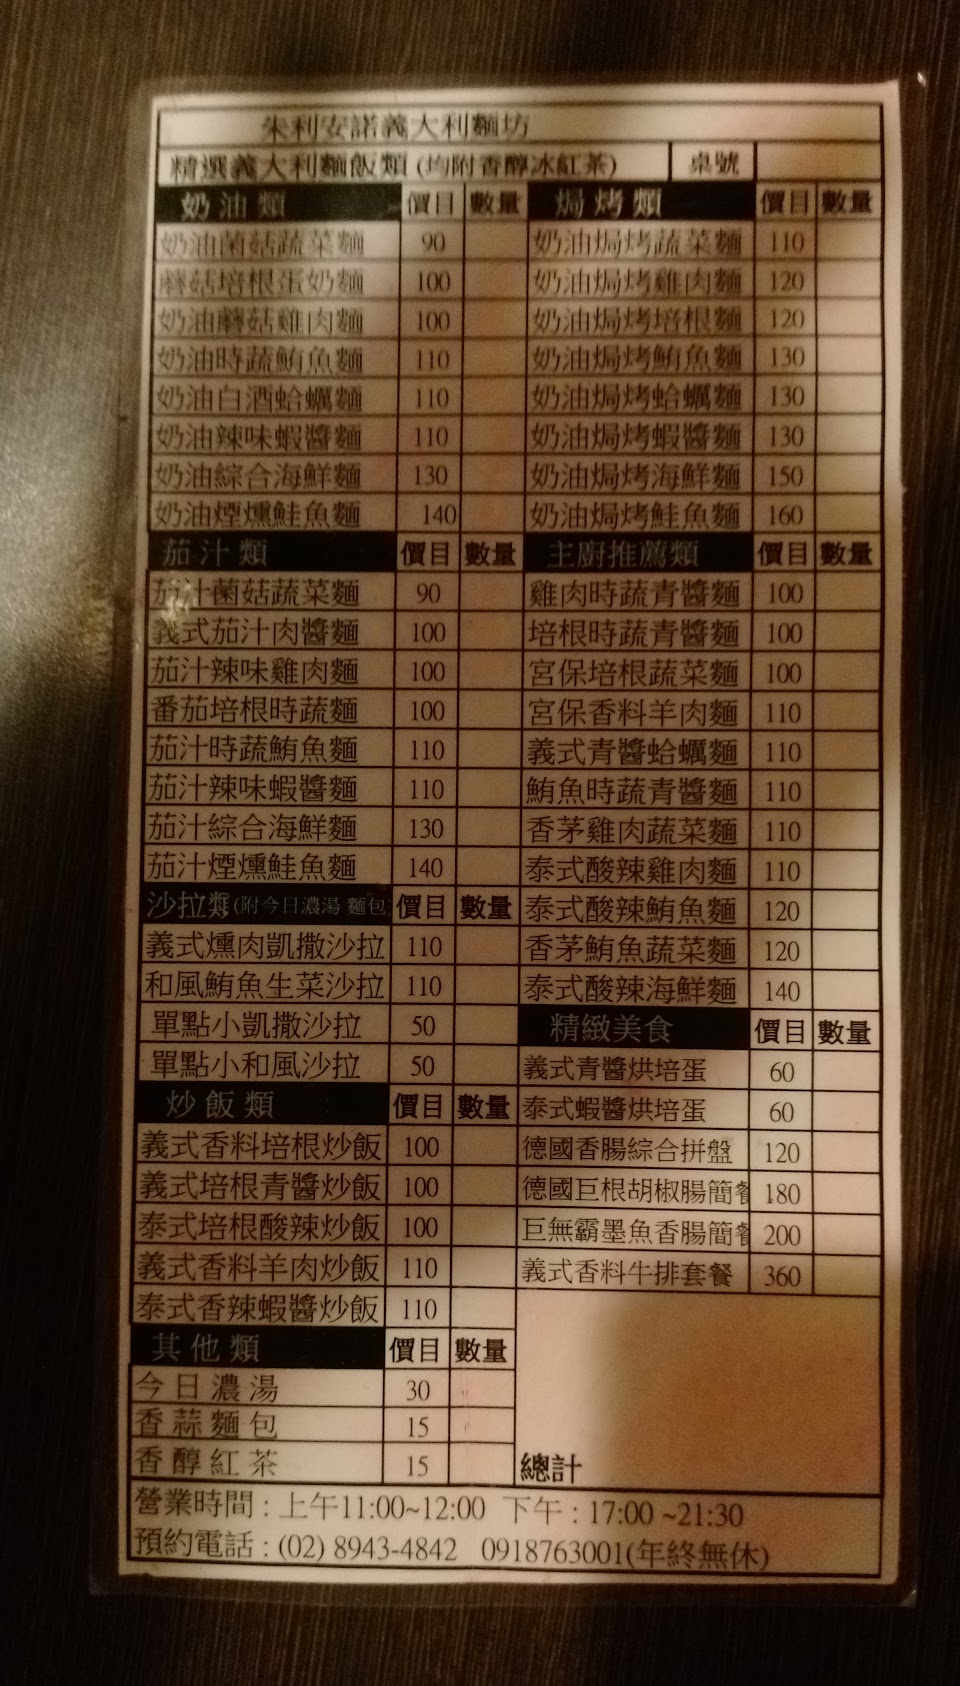 朱利安諾義大利麵坊
精選義大利麵飯類 (均附香醇冰紅茶) 桌號
奶油類 價目 數量
奶油菌菇蔬菜麵 90
蘑菇培根蛋奶麵 100
奶油蘑菇雞肉麵 100
奶油時蔬鮪魚麵 110
奶油白酒蛤蠣麵 110
奶油辣味蝦醬麵 110
奶油綜合海鮮麵 130
奶油煙燻鮭魚麵 140
茄汁類 價目 數量
茄汁菌菇蔬菜麵 90
義式茄汁肉醬麵 100
茄汁辣味雞肉麵 100
番茄培根時蔬麵 100
茄汁時蔬鮪魚麵 110
茄汁辣味蝦醬麵 110
茄汁綜合海鮮麵 130
茄汁煙燻鮭魚麵 140
沙拉類(附今日濃湯 麵包) 價目 數量
義式燻肉凱撒沙拉 110
和風鮪魚生菜沙拉 110
單點小凱撒沙拉 50
單點小和風沙拉 50
炒飯類 價目 數量
義式香料培根炒飯 100
義式培根青醬炒飯 100
泰式培根酸辣炒飯 100
義式香料羊肉炒飯 110
泰式香辣蝦醬炒飯 110
其他類 價目 數量
今日濃湯 30
香蒜麵包 15
香醇紅茶 15
焗烤類 價目 數量
奶油焗烤蔬菜麵 110
奶油焗烤雞肉麵 120
奶油焗烤培根麵 120
奶油焗烤鮪魚麵 130
奶油焗烤蛤蠣麵 130
奶油焗烤蝦醬麵 130
奶油焗烤海鮮麵 150
奶油焗烤鮭魚麵 160
主廚推薦類 價目 數量
雞肉時蔬青醬麵 100
培根時蔬青醬麵 100
宮保培根蔬菜麵 100
宮保香料羊肉麵 110
義式青醬蛤蠣麵 110
鮪魚時蔬青醬麵 110
香茅雞肉蔬菜麵 110
泰式酸辣雞肉麵 110
泰式酸辣鮪魚麵 120
香茅鮪魚蔬菜麵 120
泰式酸辣海鮮麵 140
精緻美食 價目 數量
義式青醬烘培蛋 60
泰式蝦醬烘培蛋 60
德國香腸綜合拼盤 120
德國巨根胡椒腸簡餐 180
巨無霸墨魚香腸簡餐 200
義式香料牛排套餐 360
總計
營業時間 : 上午11:00~12:00 下午 : 17:00 ~21:30
預約電話 : (02) 8943-4842 0918763001(年終無休)